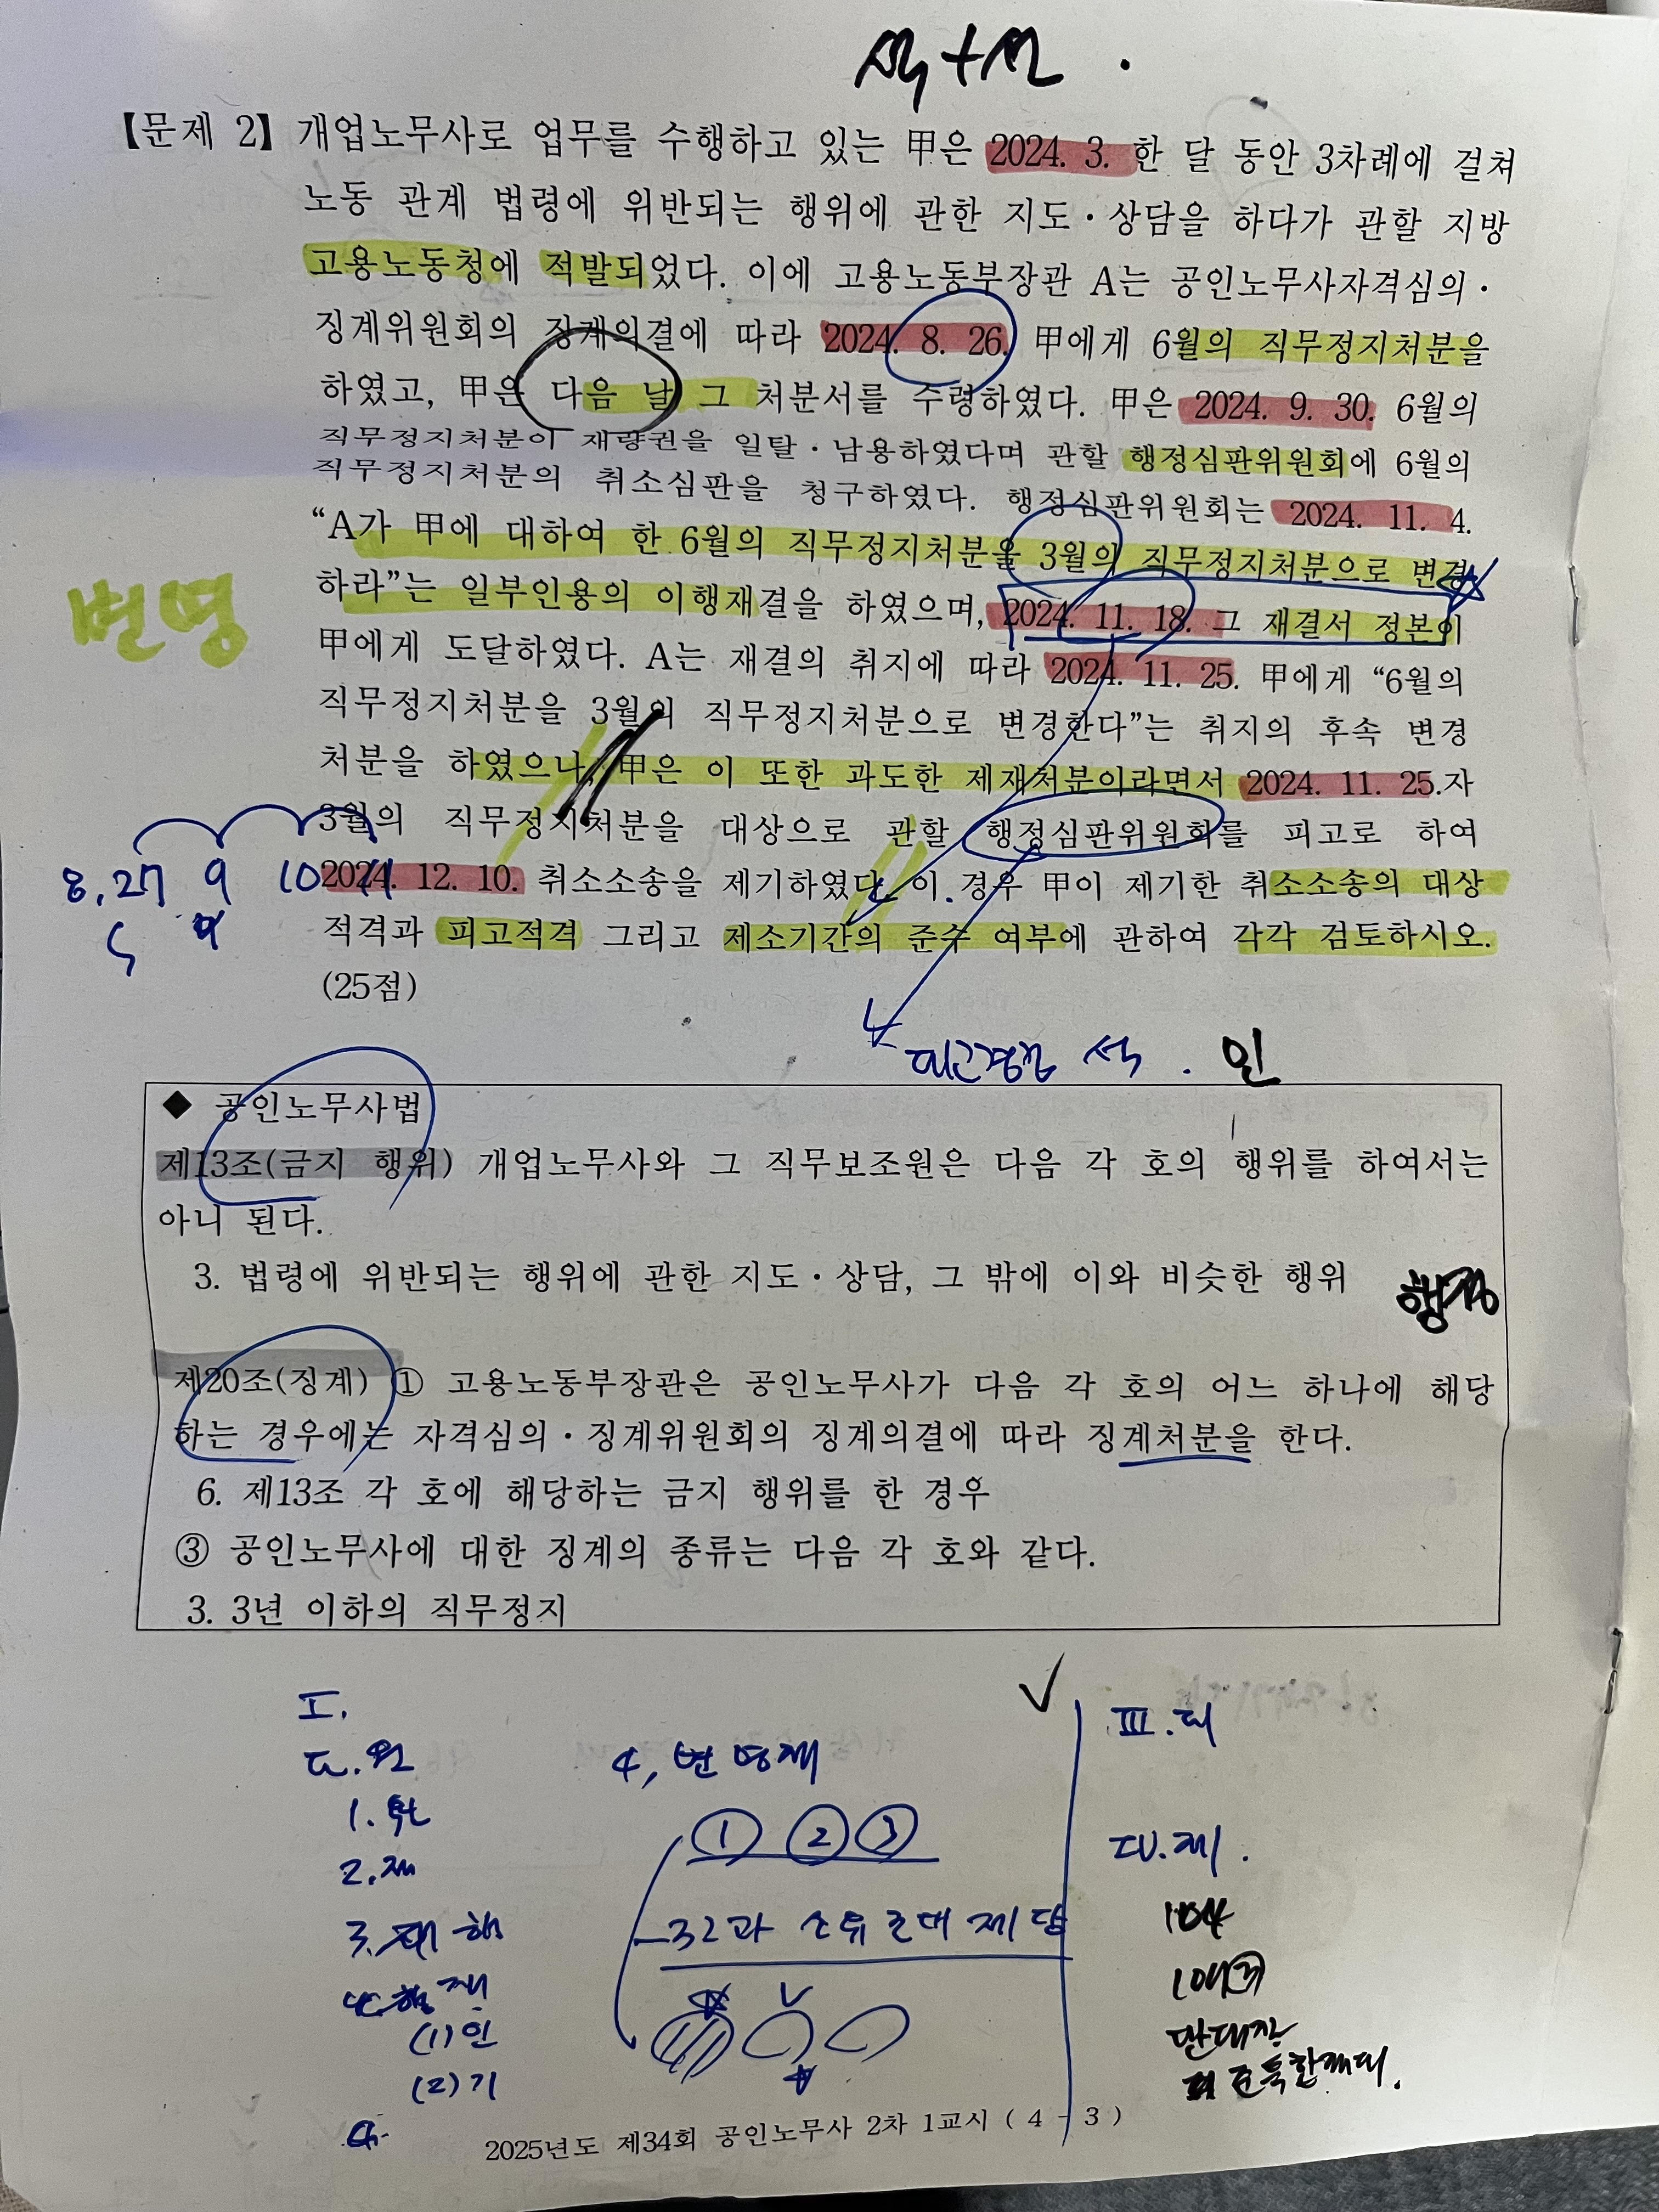 【문제 2】 개업노무사로 업무를 수행하고 있는 甲은 2024. 3. 한 달 동안 3차례에 걸쳐
노동 관계 법령에 위반되는 행위에 관한 지도·상담을 하다가 관할 지방
고용노동청에 적발되었다. 이에 고용노동부장관 A는 공인노무사자격심의·
징계위원회의 징계의결에 따라 2024. 8. 26. 甲에게 6월의 직무정지처분을
하였고, 甲은 다음 날 그 처분서를 수령하였다. 甲은 2024. 9. 30. 6월의
직무정지처분이 재량권을 일탈·남용하였다며 관할 행정심판위원회에 6월의
직무정지처분의 취소심판을 청구하였다. 행정심판위원회는 2024. 11. 4.
“A가 甲에 대하여 한 6월의 직무정지처분을 3월의 직무정지처분으로 변경
하라”는 일부인용의 이행재결을 하였으며, 2024. 11. 18. 그 재결서 정본이
변명
甲에게 도달하였다. A는 재결의 취지에 따라 2024. 11. 25. 甲에게 “6월의
직무정지처분을 3월의 직무정지처분으로 변경한다”는 취지의 후속 변경
처분을 하였으나, 甲은 이 또한 과도한 제재처분이라면서 2024. 11. 25.자
3월의 직무정지처분을 대상으로 관할 행정심판위원회를 피고로 하여
8.27 9 10 11
2024. 12. 10. 취소소송을 제기하였다. 이 경우 甲이 제기한 취소소송의 대상
적격과 피고적격 그리고 제소기간의 준수 여부에 관하여 각각 검토하시오.
(25점)
피고경정 석. 인
◆ 공인노무사법
제13조(금지 행위) 개업노무사와 그 직무보조원은 다음 각 호의 행위를 하여서는
아니 된다.
3. 법령에 위반되는 행위에 관한 지도·상담, 그 밖에 이와 비슷한 행위
행정
제20조(징계) ① 고용노동부장관은 공인노무사가 다음 각 호의 어느 하나에 해당
하는 경우에는 자격심의·징계위원회의 징계의결에 따라 징계처분을 한다.
6. 제13조 각 호에 해당하는 금지 행위를 한 경우
③ 공인노무사에 대한 징계의 종류는 다음 각 호와 같다.
3. 3년 이하의 직무정지
I.
II. 원
1.
2. 재
3. 행
재
(1) 인
(2) 기
4. 변명재
① ② ③
III. 피
IV. 제.
104
2025년도 제34회 공인노무사 2차 1교시 ( 4 - 3 )